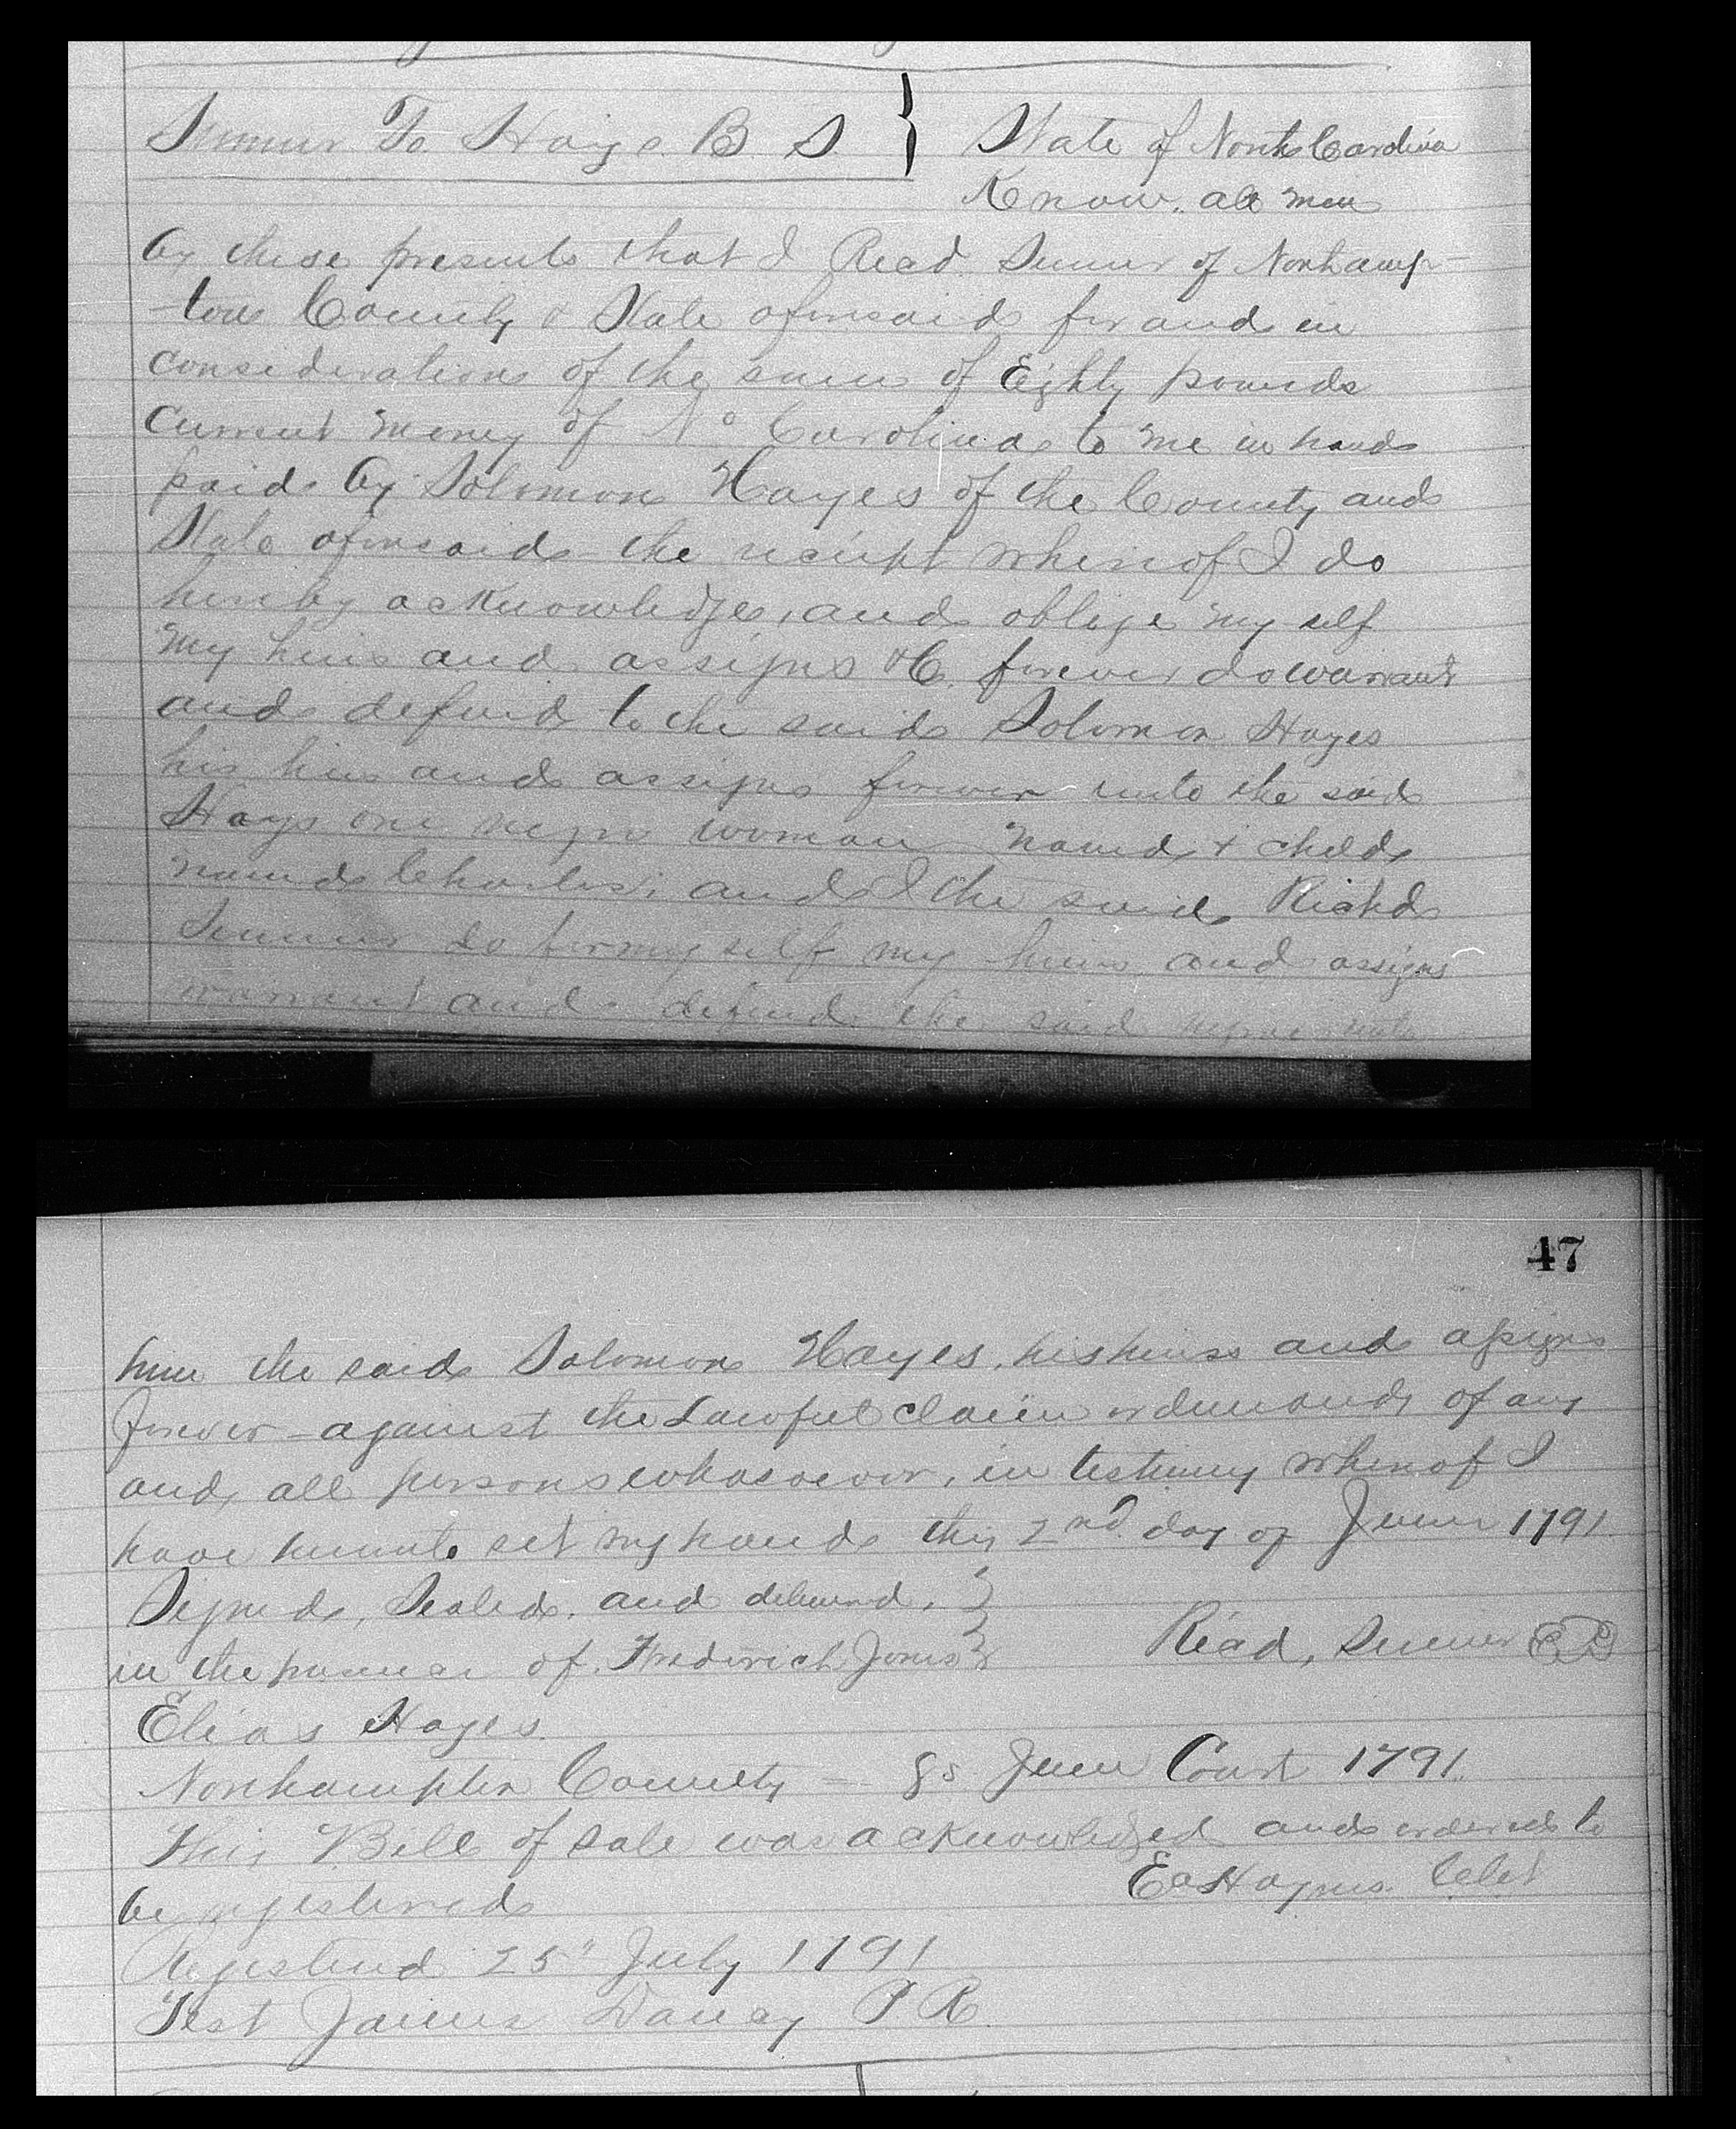 Sumner To Hays B S } State of North Carolina
Know all men
by these presents that I Read Sumner of Northamp-
-ton County & State aforesaid for and in
consideration of the sum of Eighty pounds
Current money of No Carolina to me in hand
paid by Solomon Hayes of the County and
State aforesaid the receipt whereof I do
hereby acknowledge, and oblige my self
my heirs and assigns &C. forever do warrant
and defend to the said Solomon Hayes
his heirs and assigns forever unto the said
Hays one negro woman named & child
named Charles; and I the said Richd
Sumner do for my self my heirs and assigns
warrant and defend the said negroe unto
47
him the said Solomon Hayes, his heirs and assigns
forever against the Lawful claim or demands of any
and all persons whosoever, in testimony whereof I
have hereunto set my hand this 2nd day of June 1791
Signed, Sealed, and delivered, }
in the presence of. Frederick Jones } Read, Sumner
Elias Hayes
Northampton County = Ss June Court 1791
This Bill of Sale was acknowledged and ordered to
be registered Ea Haynes Clk
Registered 25" July 1791
Test James Dancy P. R.